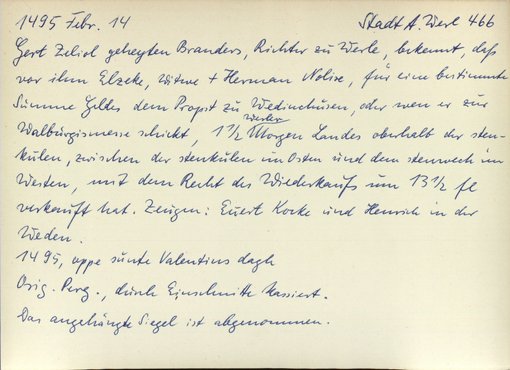 1495 Febr. 14 Stadt A. Werl 466
Gert Zeliol geheyten Branders, Richter zu Werle, bekennt, daß
vor ihm Elzeke, Witwe + Herman Nolise, für eine bestimmte
Summe Geldes dem Propst zu Wedinchusen, oder wen er zur
Walburgismesse schickt, 1 1/2 Werler Morgen Landes oberhalb der sten-
kulen, zwischen der stenkulen im Osten und dem stenwech im
Westen, mit dem Recht des Wiederkaufs um 13 1/2 fl
verkauft hat. Zeugen: Evert Kocke und Henrich in der
Weden.
1495, uppe sunte Valentins dagh
Orig. Perg., durch Einschnitte kassiert.
Das angehängte Siegel ist abgenommen.